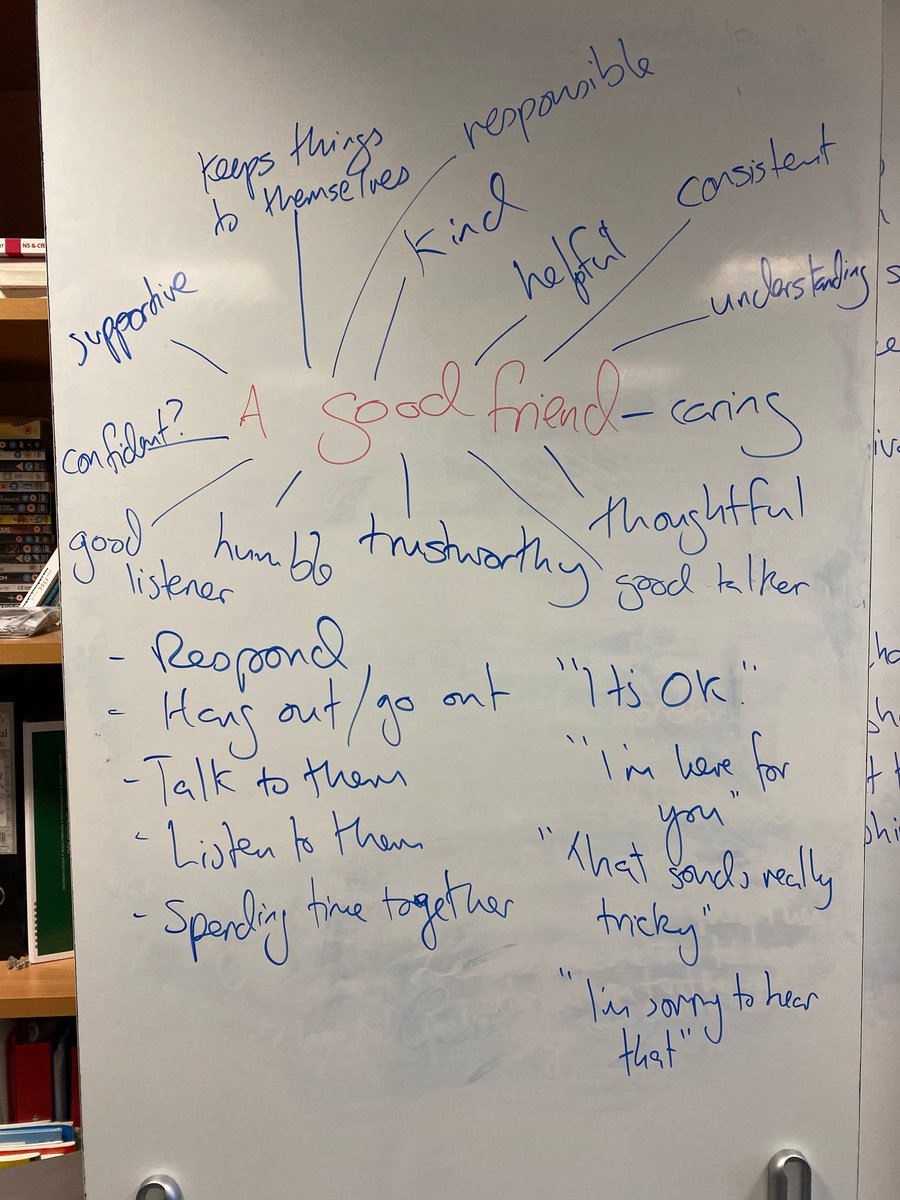 responsible
keeps things
to themselves
kind
consistent
helpful
understanding
supportive
A good friend
caring
confident?
good
listener
humble
trustworthy
thoughtful
good talker
- Respond
- Hang out/go out
- Talk to them
- Listen to them
- Spending time together
"It's OK."
"I'm here for
you"
"that sounds really
tricky"
"I'm sorry to hear
that"